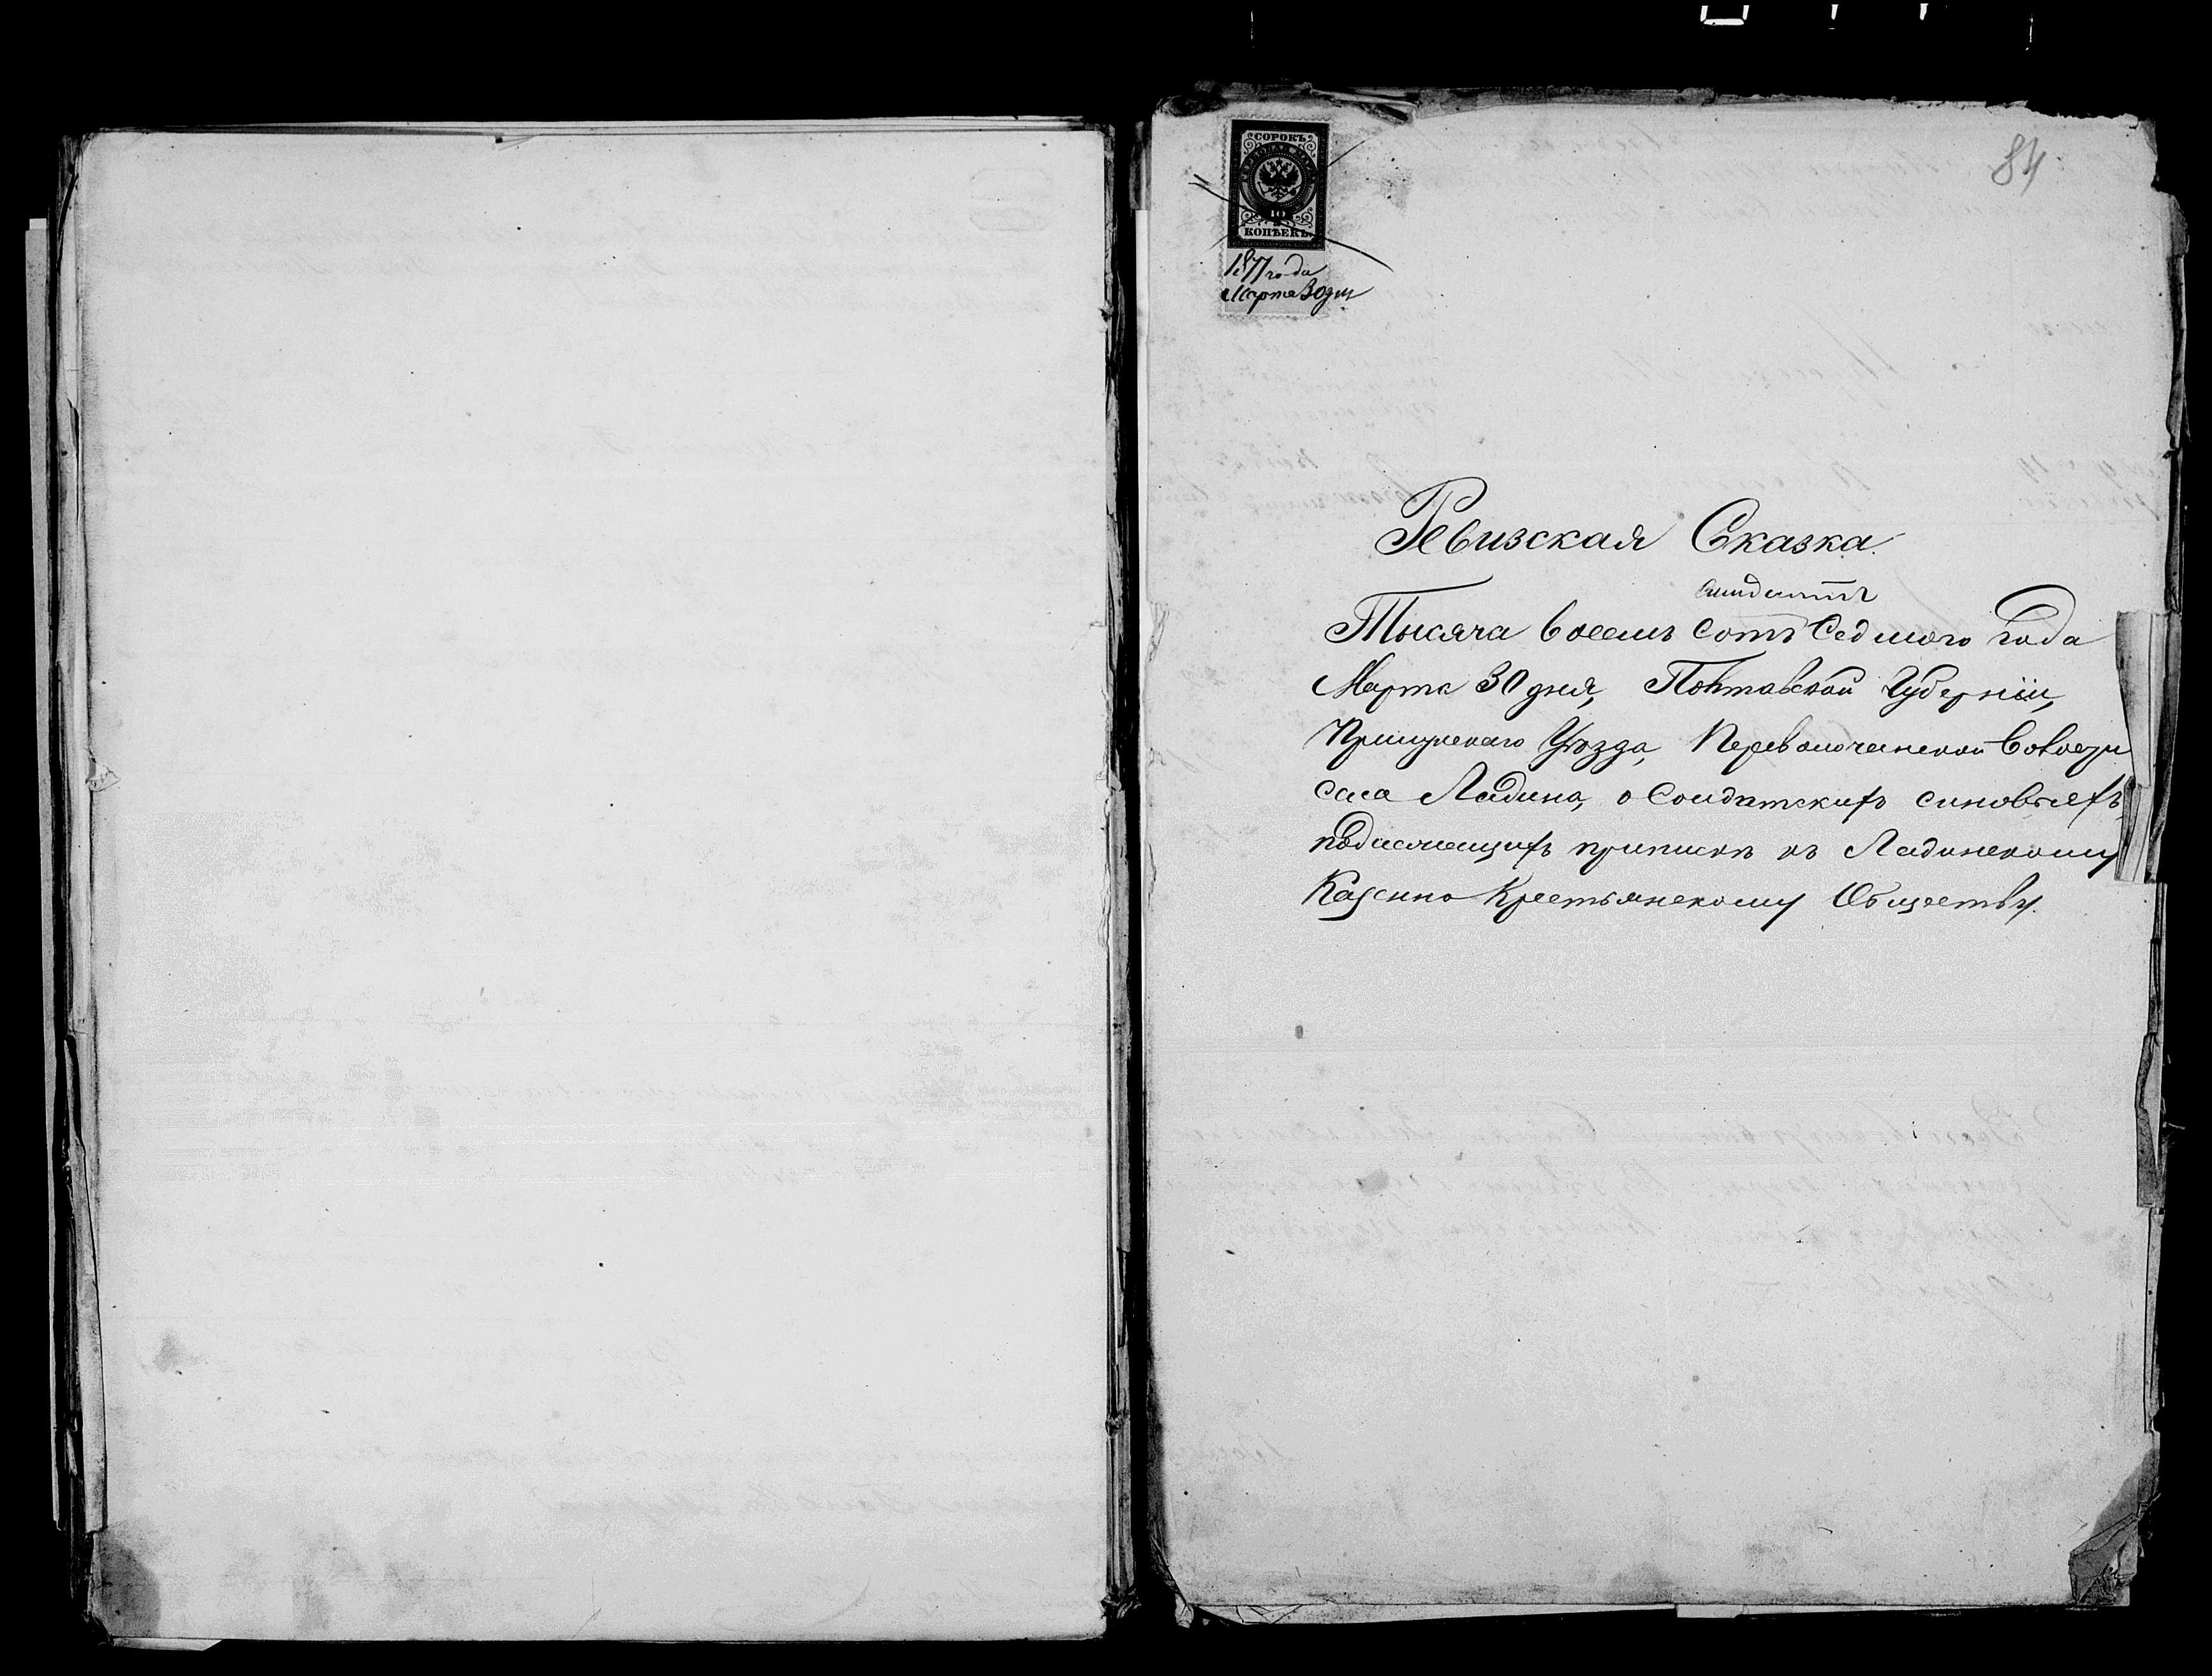 84
СОРОКЪ
10
КОПѢЕКЪ
1877 года
Марта 30 дня
Ревизская Сказка
семдесятъ
Тысяча восемъ сотъ седмого года
Марта 30 дня, Полтавской Губерніи,
Прилускаго Уѣзда, Переволочанской Волости
села Ладина, о Солдатскихъ синовьяхъ,
подлежащихъ припискѣ къ Ладинскому
Казенно Крестьянскому Обществу.